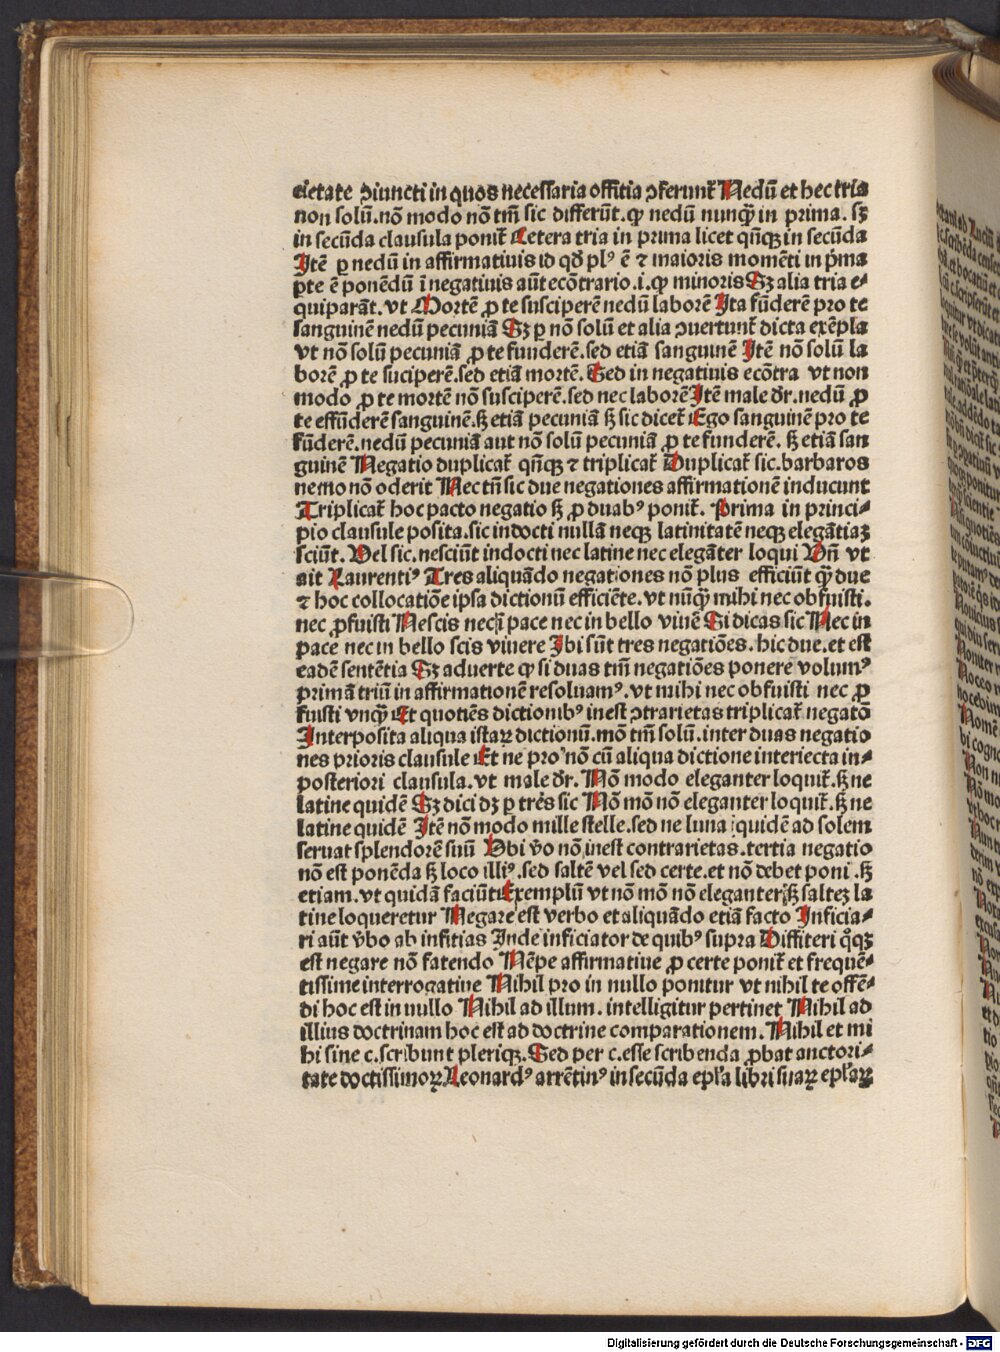 cietate ↄiuncti in quos necessaria offitia ↄferunt̄ Nedū et hec tria
non solū.nō modo nō tm̄ sic differūt.qꝫ nedū nunqͣꝫ in prima. sꝫ
in secūda clausula ponit̄ Cetera tria in prima licet qn̄qꝫ in secūda
Itē ꝑ nedū in affirmatiuis id qd̄ plꝰ ē ⁊ maioris momēti in p̄ma
ꝑte ē ponēdū ī negatiuis aūt ecōtrario.i.qꝫ minoris Sꝫ alia tria e⸗
quiparāt. vt Mortē ꝓ te susciperē nedū laborē Ita fūderē pro te
sanguinē nedū pecuniā Sꝫ ꝑ nō solū et alia ↄuertunt̄ dicta exēpla
vt nō solū pecuniā ꝓ te funderē.sed etiā sanguinē Itē nō solū la
borē ꝓ te suciperē.sed etiā mortē. Sed in negatiuis ecōtra vt non
modo ꝓ te mortē nō susciperē.sed nec laborē Itē male dr̄.nedū ꝓ
te effūderē sanguinē.sꝫ etiā pecuniā sꝫ sic dicet̄ Ego sanguinē pro te
fūderē.nedū pecuniā aut nō solū pecuniā ꝓ te funderē. sꝫ etiā san
guinē Negatio duplicat̄ qn̄qꝫ ⁊ triplicat̄ Duplicat̄ sic.barbaros
nemo nō oderit Nec tn̄ sic due negationes affirmationē inducunt
Triplicat̄ hoc pacto negatio sꝫ ꝓ duabꝰ ponit̄. Prima in princi⸗
pio clausule posita.sic indocti nullā neqꝫ latinitatē neqꝫ elegātiaꝫ
sciūt. Vel sic.nesciūt indocti nec latine nec elegāter loqui Vn̄ vt
ait Laurentiꝰ Tres aliquādo negationes nō plus efficiūt qͣꝫ due
⁊ hoc collocatiōe ipsa dictionū efficiēte.vt nūqͣꝫ mihi nec obfuisti.
nec ꝓfuisti Nescis nec ī pace nec in bello viuē Si dicas sic Nec in
pace nec in bello scis viuere Ibi sūt tres negatiōes.hic due.et est
eadē sentētia Sꝫ aduerte qꝫ si duas tm̄ negatiōes ponere volumꝰ
primā triū in affirmationē resoluamꝰ.vt mihi nec obfuisti nec ꝓ
fuisti vnqͣꝫ Et quotiēs dictionibꝰ inest ↄtrarietas triplicat̄ negatō
Interposita aliqua istaꝝ dictionū.mō tm̄ solū.inter duas negatio
nes prioris clausule Et ne pro nō cū aliqua dictione interiecta in⸗
posteriori clausula.vt male dr̄. Nō modo eleganter loquit̄.sꝫ ne
latine quidē Sꝫ dici dꝫ ꝑ tres sic Nō mō nō eleganter loquit̄.sꝫ ne
latine quidē Itē nō modo mille stelle.sed ne luna quidē ad solem
seruat splendorē suū Vbi v̄o nō inest contrarietas.tertia negatio
nō est ponēda sꝫ loco illiꝰ.sed saltē vel sed certe.et nō debet poni .sꝫ
etiam.vt quidā faciūt Exemplū vt nō mō nō eleganter sꝫ salteꝫ la
tine loqueretur Negare est verbo et aliquādo etiā facto Inficia⸗
ri aūt v̄bo ab infitias Inde inficiator de quibꝰ supra Diffiteri qͦqꝫ
est negare nō fatendo Nēpe affirmatiue ꝓ certe ponit̄ et frequē⸗
tissime interrogatiue Nihil pro in nullo ponitur vt nihil te offē⸗
di hoc est in nullo Nihil ad illum. intelligitur pertinet Nihil ad
illius doctrinam hoc est ad doctrine comparationem. Nihil et mi
hi sine c.scribunt pleriqꝫ. Sed per c.esse scribenda ꝓbat auctori⸗
tate doctissimoꝝ Leonardꝰ arrētinꝰ in secūda ep̄l'a libri suaꝝ ep̄l'aꝝ
Digitalisierung gefördert durch die Deutsche Forschungsgemeinschaft - DFG